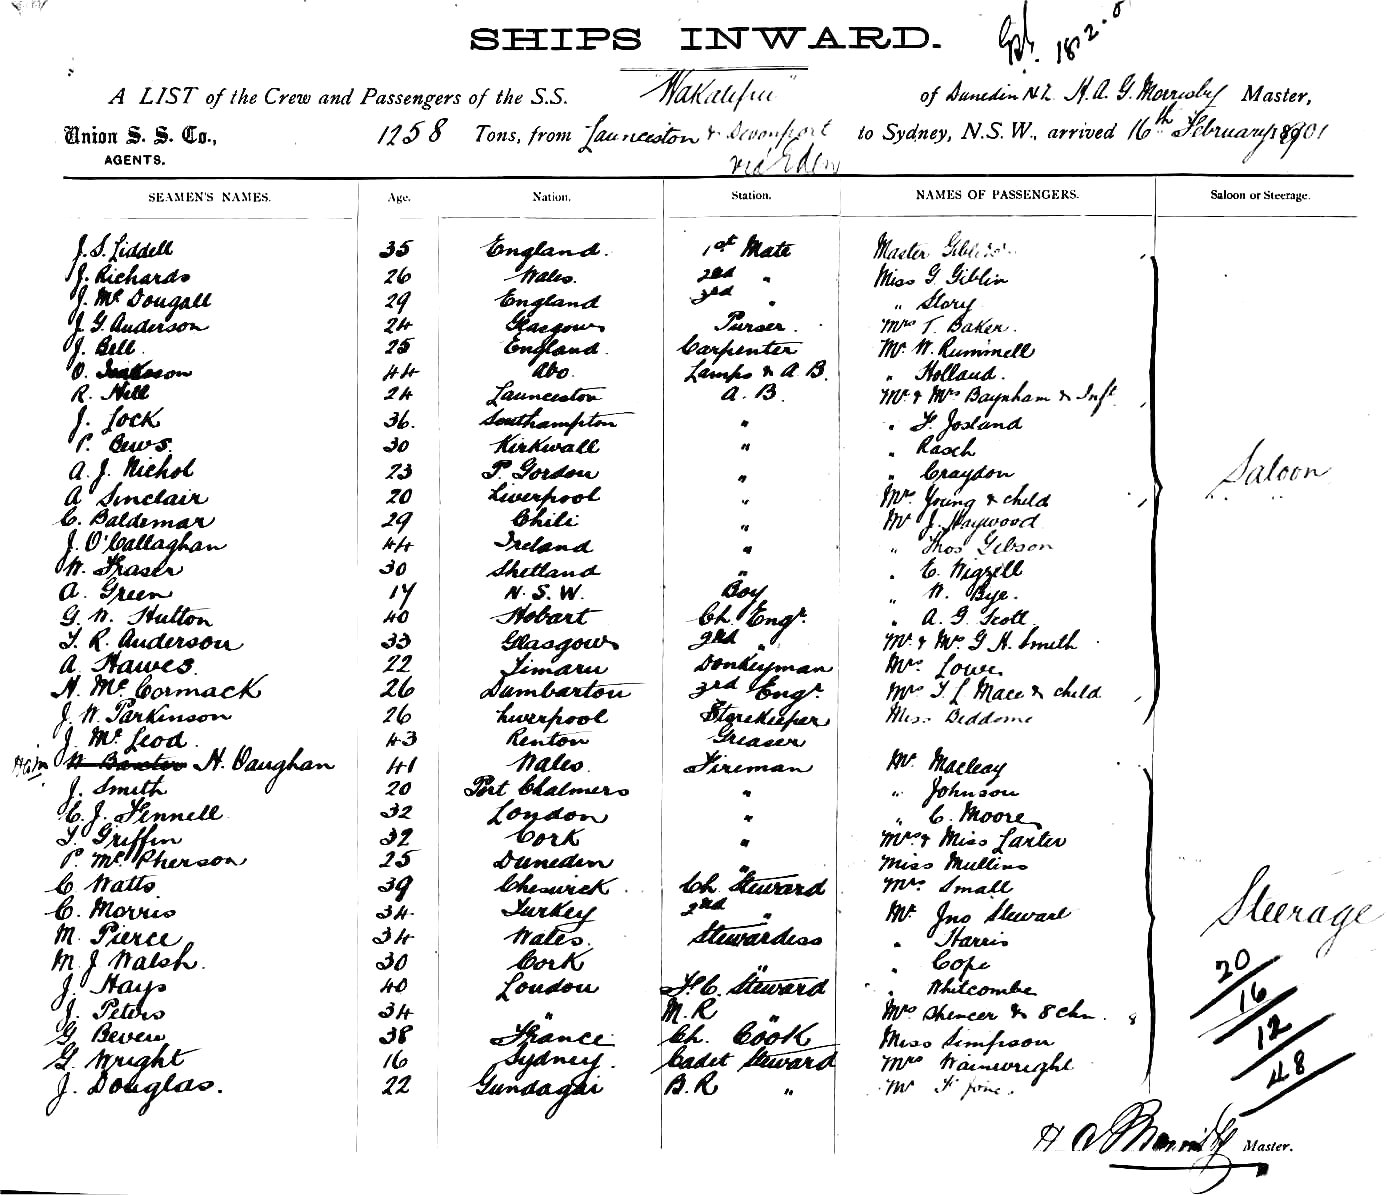 SHIPS INWARD.
A LIST of the Crew and Passengers of the S.S. "Wakatipu" of Dunedin N.Z. H. A. G. Morrisby Master,
Union S. S. Co., 1258 Tons, from Launceston & Devonport to Sydney, N.S.W., arrived 16th February 1901
AGENTS. via Eden
SEAMEN'S NAMES. Age. Nation. Station. NAMES OF PASSENGERS. Saloon or Steerage.
J. S. Liddell 35 England. 1st Mate Master Giblin
J. Richards 26 Wales. 2nd " Miss G. Giblin
J. Mc Dougall 29 England 3rd " " Story
J. G. Anderson 24 Glasgow Purser. Mrs T. Baker.
J. Bell. 25 England. Carpenter Mr. W. Rummell
O. 44 Abo. Lamps & A B. " Holland.
R. Hill 24 Launceston A. B. Mr. & Mrs Baynham & Inft.
J. Lock 36. Southampton " " F. Josland
P. Bews. 30 Kirkwall " " Rasch
A. J. Nichol 23 P. Gordon " " Craydon
A Sinclair 20 Liverpool " Mrs. Young & child
C. Baldemar 29 Chili " Mr J. Haywood
J. O'Callaghan 44 Ireland " " Thos Gibson
W. Fraser 30 Shetland " " E. Wigzell
A. Green 17 N. S. W. Boy " W. Bye.
G. W. Hutton 40 Hobart Ch. Engr. " A. G. Scott
T. R. Anderson 33 Glasgow 2nd " Mr. & Mrs. G H. Smith
A. Hawes 22 Timaru Donkeyman Mrs. Lowe
H. Mc Cormack 26 Dumbarton 3rd Engr. Mrs T L Mace & child
J. W. Parkinson 26 Liverpool Storekeeper Miss Beddome
J. Mc Leod. 43 Renton Greaser
W Baxter H. Vaughan 41 Wales. Fireman Mr. Macleay
J. Smith 20 Port Chalmers " " Johnson
C. J. Fennell 32 London " " C. Moore
T. Griffin 32 Cork " Mrs & Miss Larter
P. Mc Pherson 25 Dunedin " Miss Mullins
C Watts 39 Cheswick. Ch. Steward Mrs. Small
C. Morris 34. Turkey 2nd " Mr. Jno Stewart
M. Pierce 34 Wales. Stewardess " Harris
M. J Walsh. 30 Cork " " Cope
J. Hays 40 London F. C. Steward " Whitcombe
J. Peters 34 " M. R " Mrs Spencer & 8 chn. 8
G Beven 38 France Ch. Cook Miss Simpson
G. Wright 16 Sydney. Cadet Steward Mrs Wainwright
J. Douglas. 22 Gundagai B. R " Mr F
Saloon
Steerage
20
16
12
48
H A G Morrisby Master.